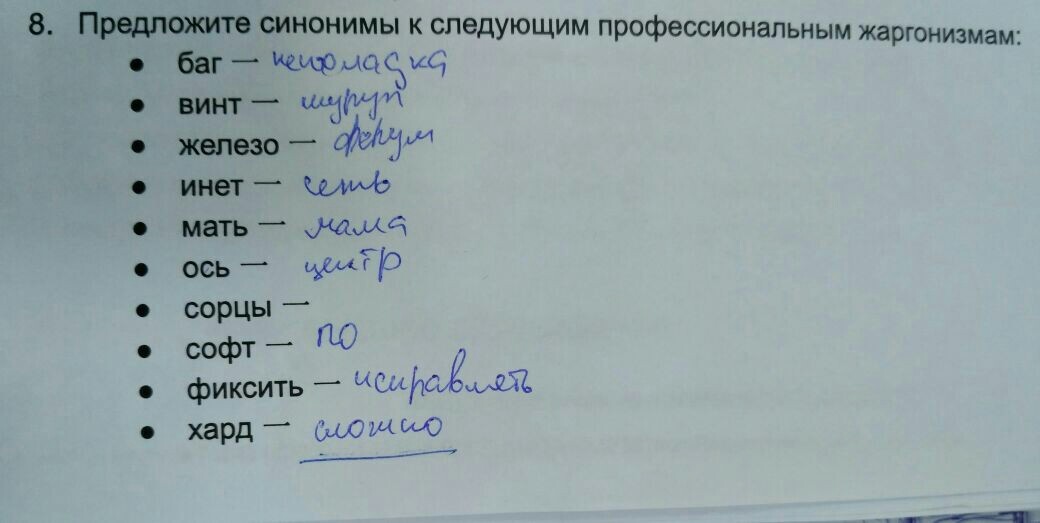 8. Предложите синонимы к следующим профессиональным жаргонизмам:
• баг — неполадка
• винт — шуруп
• железо — ферум
• инет — сеть
• мать — мама
• ось — центр
• сорцы —
• софт — ПО
• фиксить — исправлять
• хард — сложно